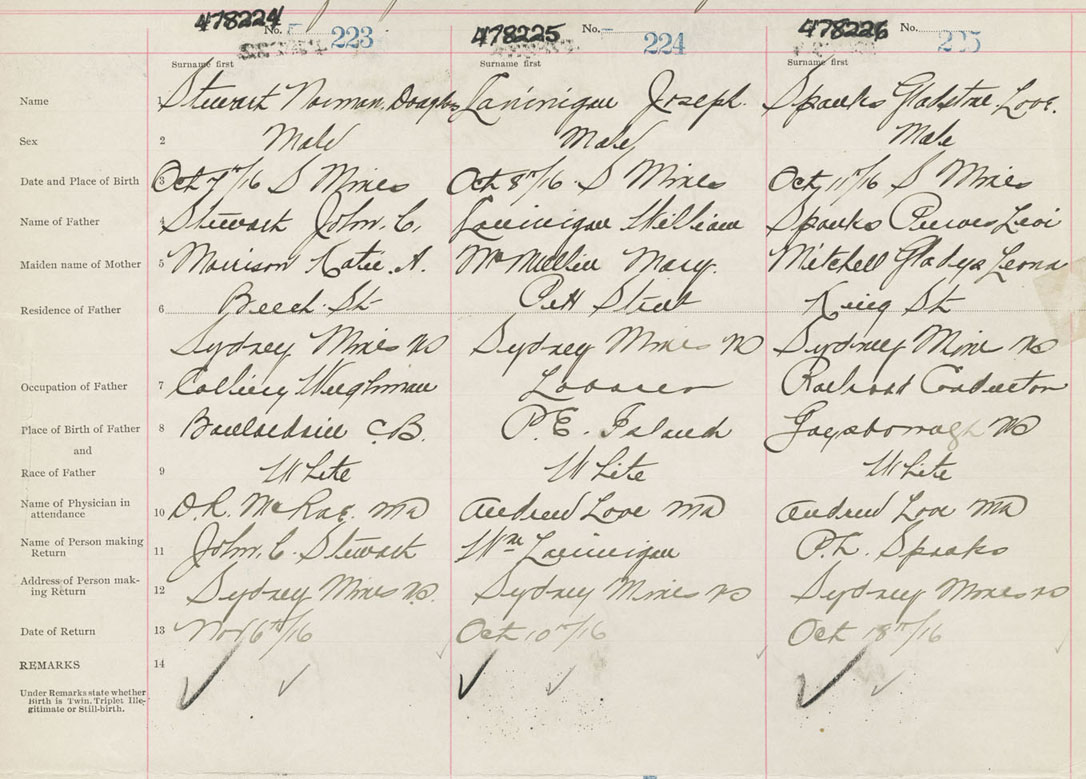 478224 478225 478226
No. 223 No. 224 No. 225
Surname first Surname first Surname first
Name 1 Stewart Norman, Douglas Laninigan Joseph. Sparks Gladstone, Love.
Sex 2 Male Male Male
Date and Place of Birth 3 Oct 7th/16 S Mines Oct 8th/16. S Mines Oct 11th/16 S Mines
Name of Father 4 Stewart John. C. William Sparks Levi
Maiden name of Mother 5 Morrison Katie. A. McMullin Mary. Mitchell Gladys Leona
Residence of Father 6 Beech. St Pitt Street King St
Sydney Mines NS Sydney Mines NS Sydney Mine NS
Occupation of Father 7 Colliery Weighman Laborer Railroad Conductor
Place of Birth of Father 8 Boulardarie C.B. P.E. Island Guysborough NS
and
Race of Father 9 White White White
Name of Physician in
attendance 10 D.R. McRae. MD Andrew Love MD Andrew Love MD
Name of Person making
Return 11 John. C. Stewart Wm P.L. Sparks
Address of Person mak-
ing Return 12 Sydney Mines NS. Sydney Mines NS Sydney Mines NS
Date of Return 13 Nov 6th/16 Oct 10th/16 Oct 18th/16
REMARKS 14
Under Remarks state whether
Birth is Twin, Triplet Ille-
gitimate or Still-birth.